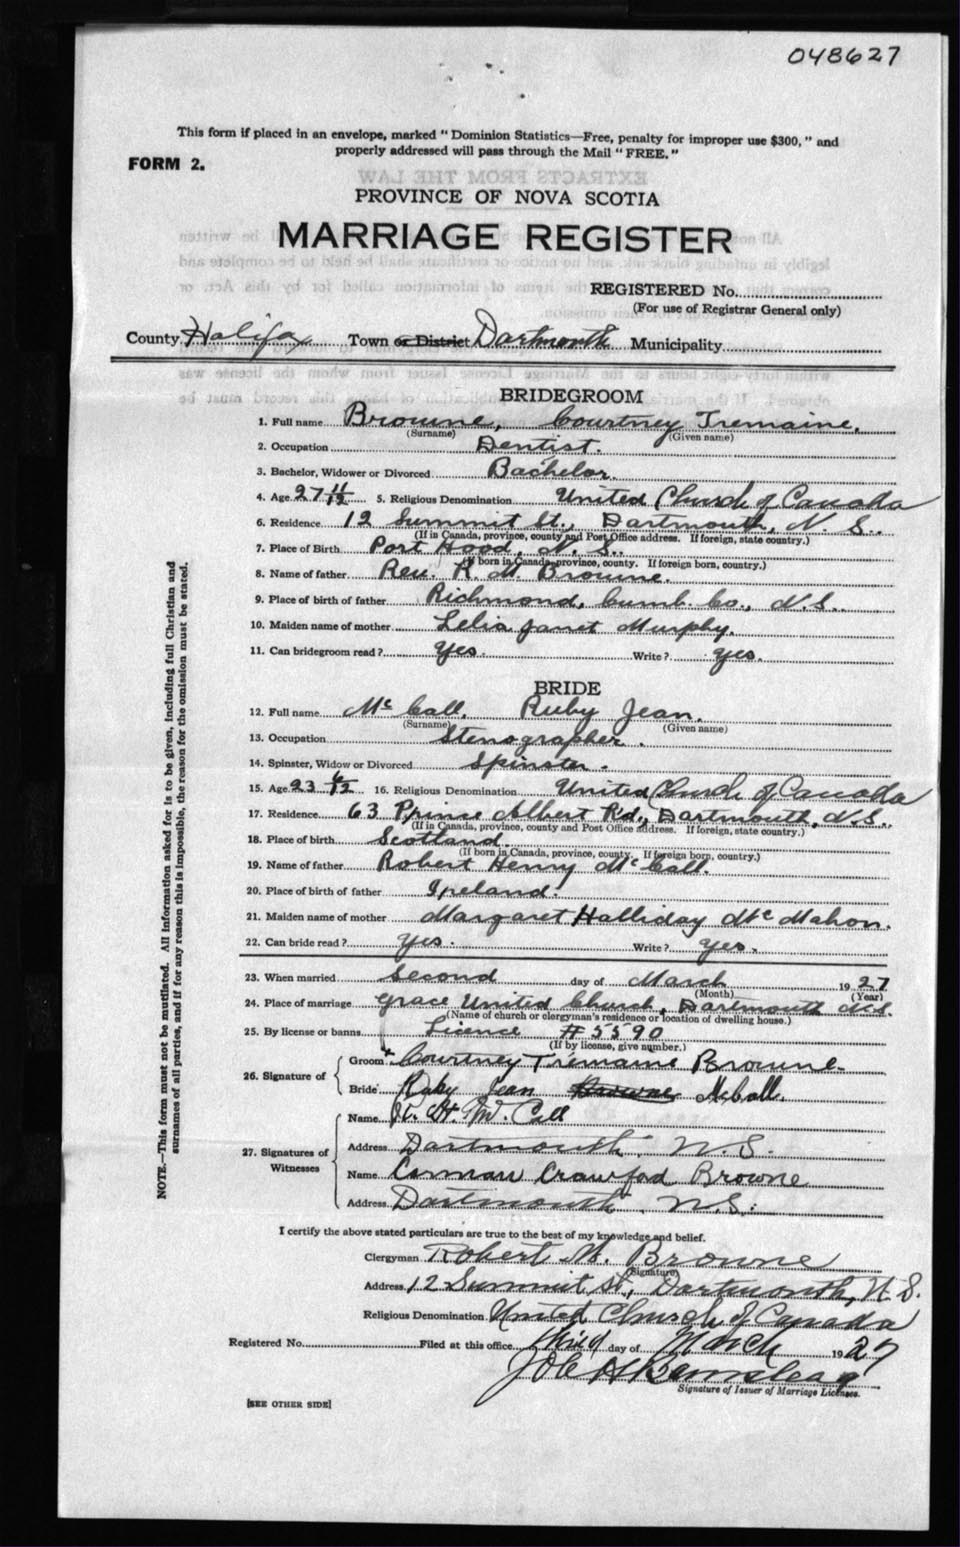 048627
This form if placed in an envelope, marked "Dominion Statistics—Free, penalty for improper use $300," and
properly addressed will pass through the Mail "FREE."
FORM 2.
PROVINCE OF NOVA SCOTIA
MARRIAGE REGISTER
REGISTERED No.
(For use of Registrar General only)
County Halifax Town or District Dartmouth Municipality
BRIDEGROOM
1. Full name Browne, Courtney Tremaine.
(Surname) (Given name)
2. Occupation Dentist.
3. Bachelor, Widower or Divorced Bachelor.
4. Age 27 11/12 5. Religious Denomination United Church of Canada
6. Residence 12 Summit St., Dartmouth, N. S.
(If in Canada, province, county and Post Office address. If foreign, state country.)
7. Place of Birth Port Hood, N. S.
(If born in Canada, province, county. If foreign born, country.)
8. Name of father Rev. R. M. Browne.
9. Place of birth of father Richmond, Cumb. Co., N.S.
10. Maiden name of mother Lelia Janet Murphy.
11. Can bridegroom read? Yes. Write? yes.
BRIDE
12. Full name Mc Call, Ruby Jean.
(Surname) (Given name)
13. Occupation Stenographer.
14. Spinster, Widow or Divorced Spinster.
15. Age 23 6/12 16. Religious Denomination United Church of Canada
17. Residence 63 Prince Albert Rd., Dartmouth, N.S.
(If in Canada, province, county and Post Office address. If foreign, state country.)
18. Place of birth Scotland.
(If born in Canada, province, county. If foreign born, country.)
19. Name of father Robert Henry Mc Call.
20. Place of birth of father Ireland.
21. Maiden name of mother Margaret Halliday Mc Mahon.
22. Can bride read? Yes. Write? yes.
23. When married Second day of March 1927
(Month) (Year)
24. Place of marriage Grace United Church, Dartmouth N.S.
(Name of church or clergyman's residence or location of dwelling house.)
25. By license or banns Licence #5590
(If by license, give number.)
26. Signature of
Groom Courtney Tremaine Browne
Bride Ruby Jean Browne McCall.
27. Signatures of Witnesses
Name R. H. Mc Call
Address Dartmouth, N. S.
Name Corman Crawford Browne
Address Dartmouth, N.S.
I certify the above stated particulars are true to the best of my knowledge and belief.
Clergyman Robert M. Browne
(Signature)
Address 12 Summit St., Dartmouth, N. S.
Religious Denomination United Church of Canada
Registered No. Filed at this office third day of March 1927
Signature of Issuer of Marriage Licenses.
[SEE OTHER SIDE]
NOTE.—This form must not be mutilated. All information asked for is to be given, including full Christian and
surnames of all parties, and if for any reason this is impossible, the reason for the omission must be stated.